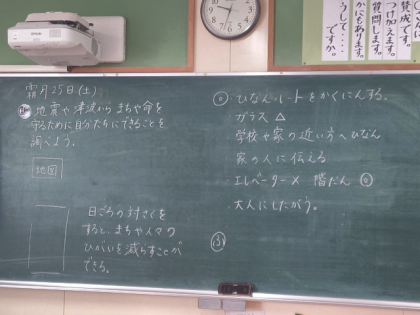 霜月25日(土)
め 地震や津波から まちや命を
守るために自分たちにできることを
調べよう。
地図
日ごろの対さくを
すると、まちや人々の
ひがいを減らすことが
できる。
・ひなんルートをかくにんする。
・ガラス △
・学校や家の近い方へひなん
・家の人に伝える
・エレベーター× 階だん ◎
・大人にしたがう。
ふ
賛成です。
つけ加えます。
質問します。
かにもあります。
うして・・・・
ですか。